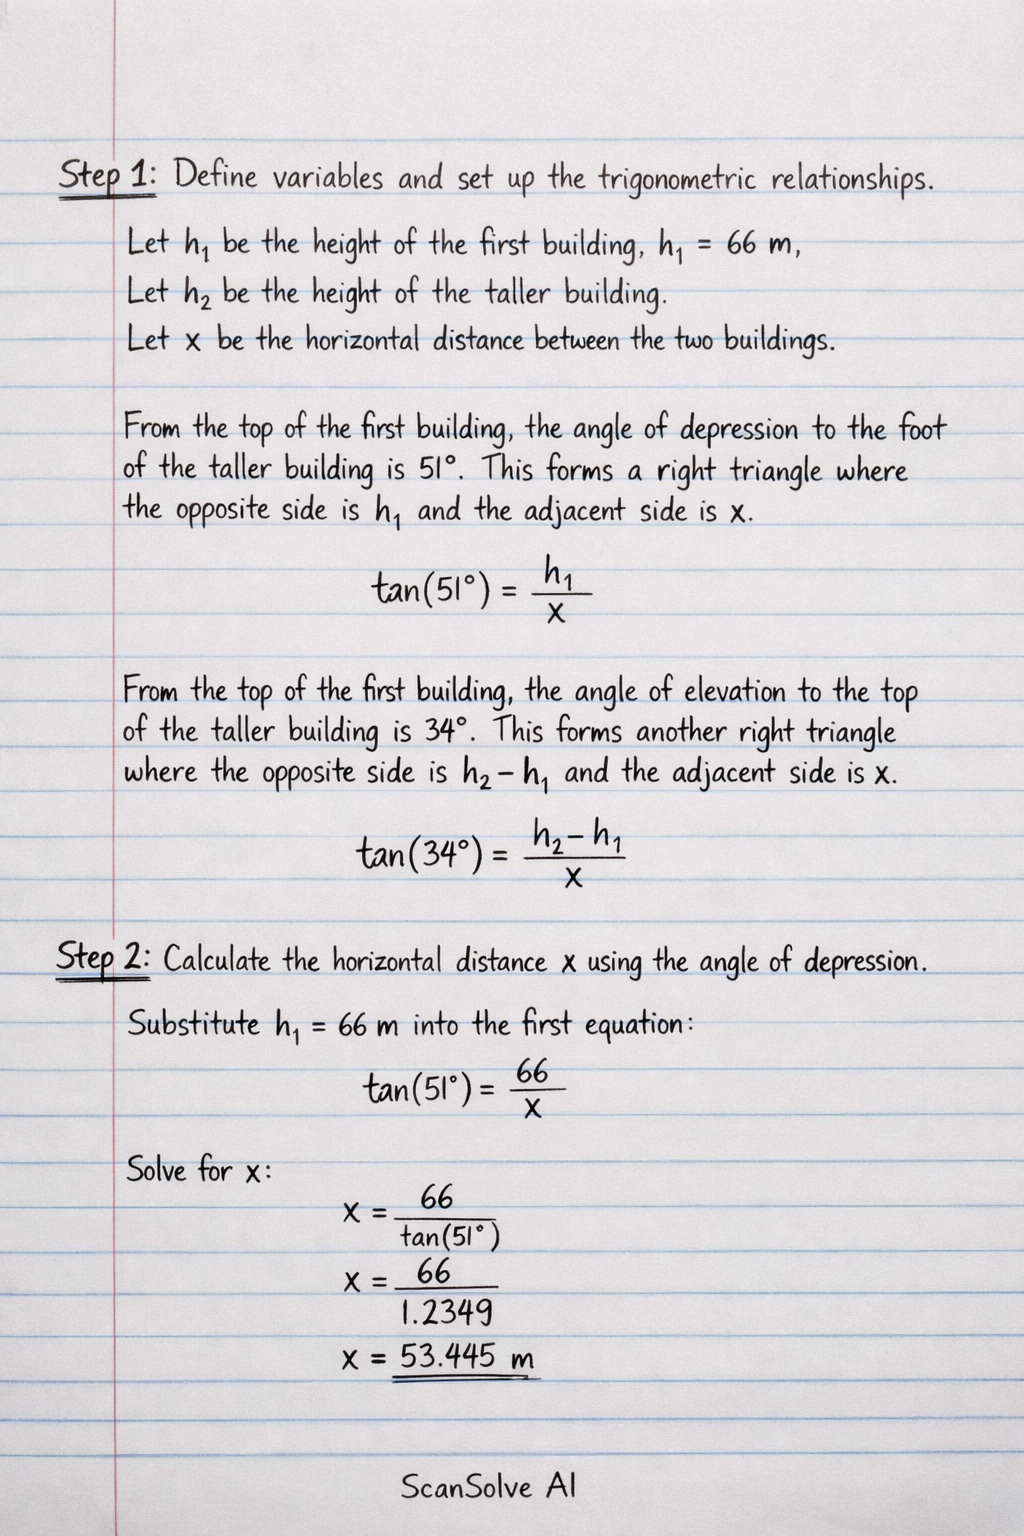 Step 1: Define variables and set up the trigonometric relationships.
Let h₁ be the height of the first building, h₁ = 66 m,
Let h₂ be the height of the taller building.
Let x be the horizontal distance between the two buildings.
From the top of the first building, the angle of depression to the foot
of the taller building is 51°. This forms a right triangle where
the opposite side is h₁ and the adjacent side is x.
tan(51°) = h₁/x
From the top of the first building, the angle of elevation to the top
of the taller building is 34°. This forms another right triangle
where the opposite side is h₂ − h₁ and the adjacent side is x.
tan(34°) = (h₂ − h₁)/x
Step 2: Calculate the horizontal distance x using the angle of depression.
Substitute h₁ = 66 m into the first equation:
tan(51°) = 66/x
Solve for x:
x = 66/tan(51°)
x = 66/1.2349
x = 53.445 m
ScanSolve AI